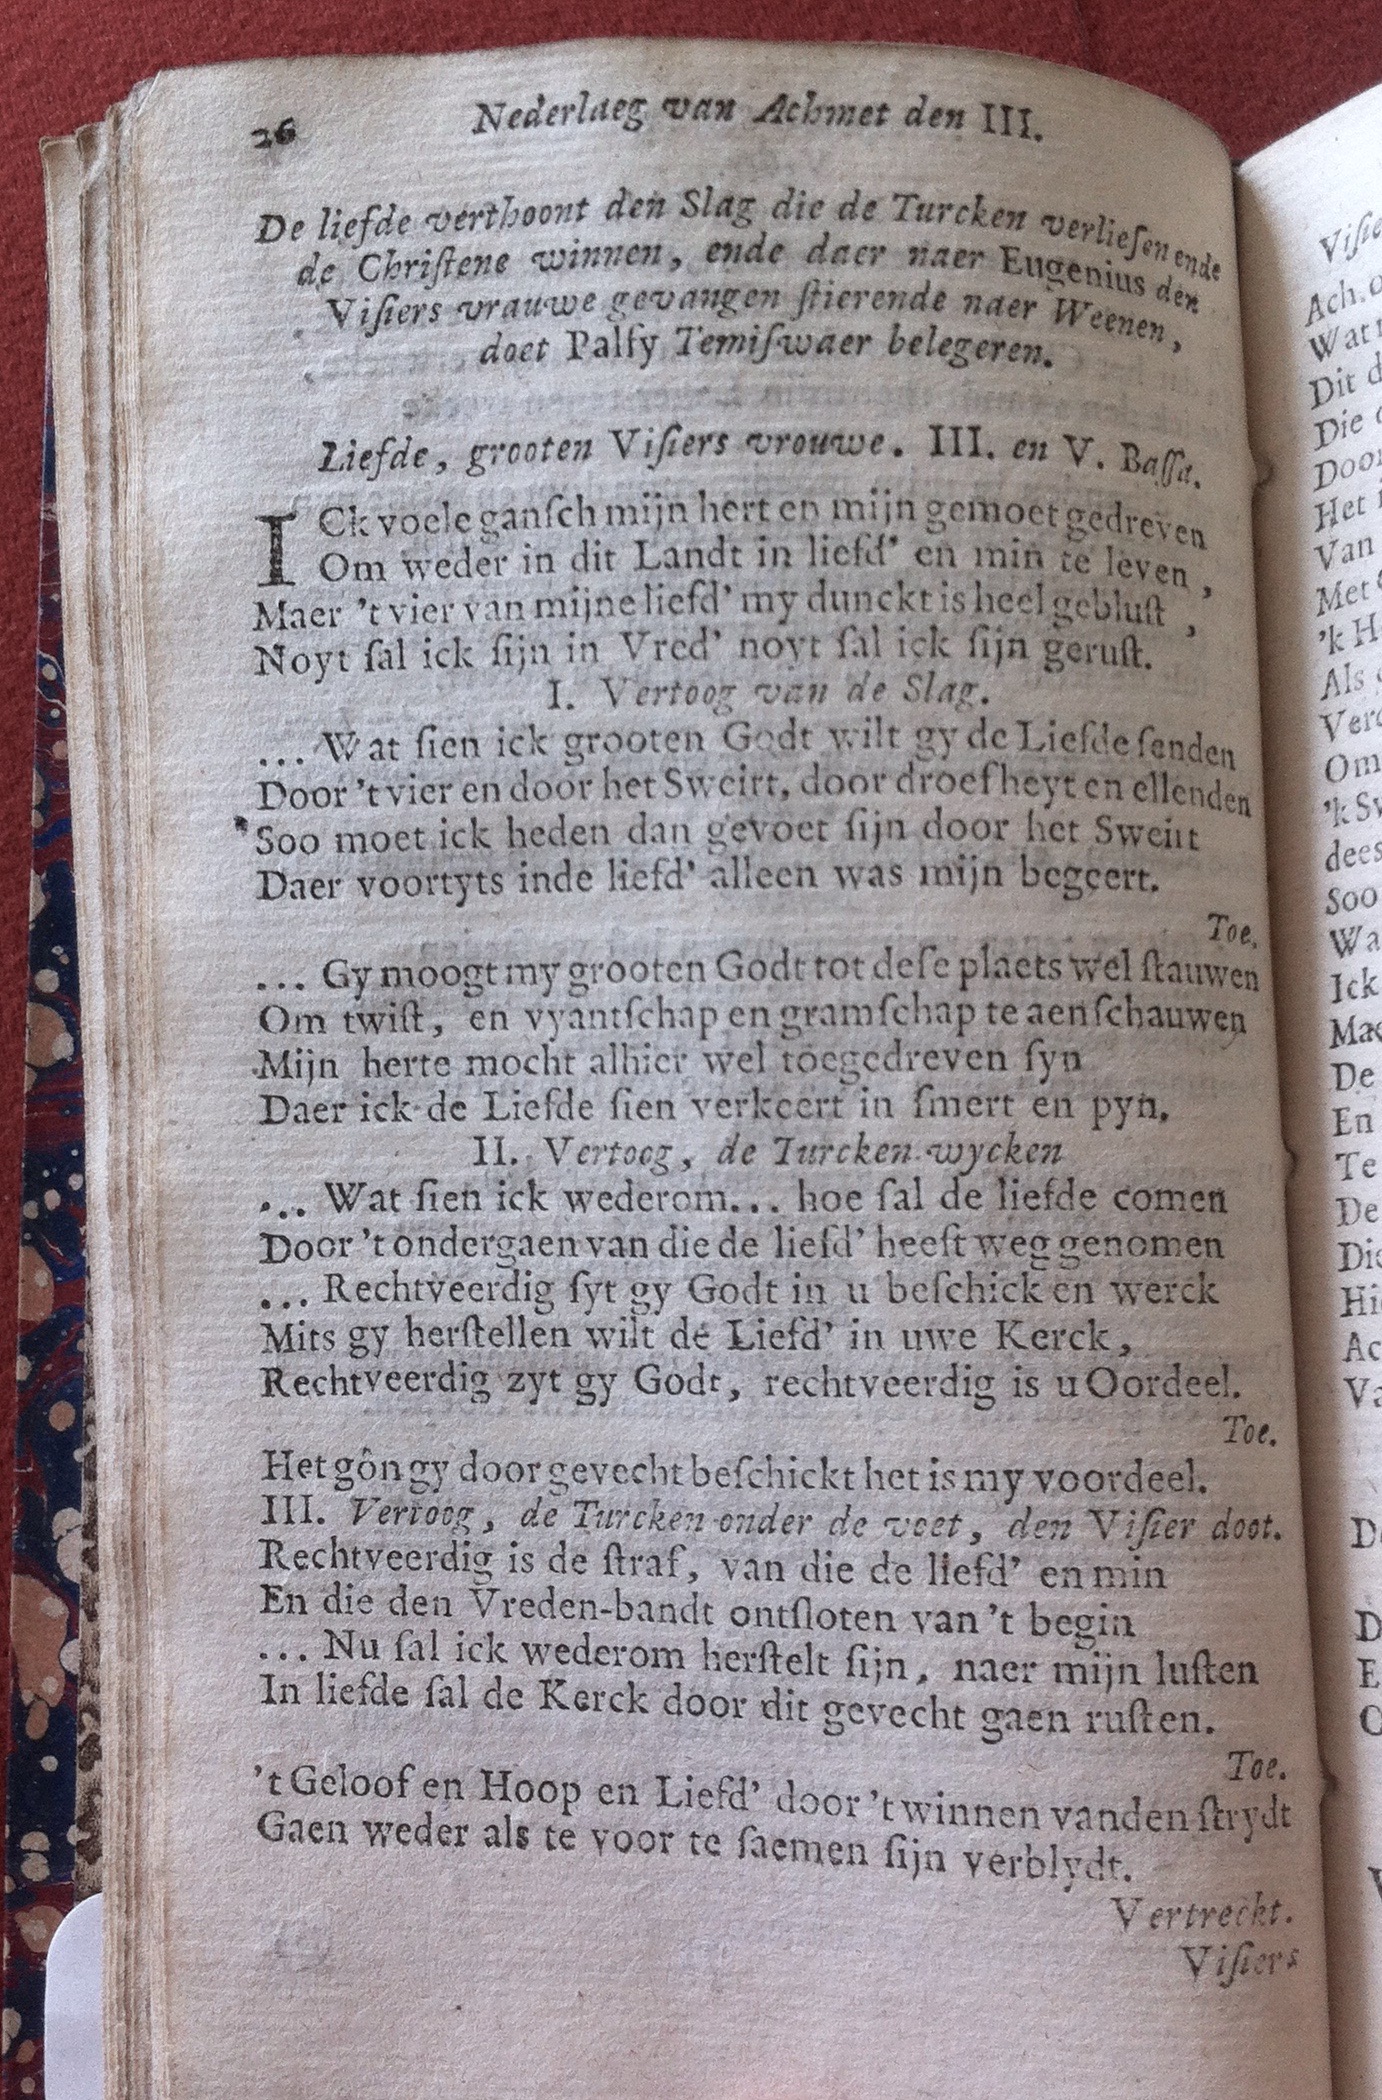 26 Nederlaeg van Achmet den III.
De liefde verthoont den Slag die de Turcken verliesen ende
de Christene winnen, ende daer naer Eugenius den
Visiers vrauwe gevangen stierende naer Weenen,
doet Palfy Temiswaer belegeren.
Liefde, grooten Visiers vrouwe. III. en V. Bassa.
ICk voele gansch mijn hert en mijn gemoet gedreven
Om weder in dit Landt in liefd' en min te leven,
Maer 't vier van mijne liefd' my dunckt is heel geblust,
Noyt sal ick sijn in Vred' noyt sal ick sijn gerust.
I. Vertoog van de Slag.
... Wat sien ick grooten Godt wilt gy de Liefde senden
Door 't vier en door het Sweirt, door droefheyt en ellenden
Soo moet ick heden dan gevoet sijn door het Sweirt
Daer voortyts inde liefd' alleen was mijn begeert.
Toe.
... Gy moogt my grooten Godt tot dese plaets wel stauwen
Om twist, en vyantschap en gramschap te aenschauwen
Mijn herte mocht alhier wel toegedreven syn
Daer ick de Liefde sien verkeert in smert en pyn.
II. Vertoog, de Turcken wycken
... Wat sien ick wederom... hoe sal de liefde comen
Door 't ondergaen van die de liefd' heeft weg genomen
... Rechtveerdig syt gy Godt in u beschick en werck
Mits gy herstellen wilt de Liefd' in uwe Kerck,
Rechtveerdig zyt gy Godt, rechtveerdig is u Oordeel.
Toe.
Het gôn gy door gevecht beschickt het is my voordeel.
III. Vertoog, de Turcken onder de voet, den Visier doot.
Rechtveerdig is de straf, van die de liefd' en min
En die den Vreden-bandt ontsloten van 't begin
... Nu sal ick wederom herstelt sijn, naer mijn lusten
In liefde sal de Kerck door dit gevecht gaen rusten.
Toe.
't Geloof en Hoop en Liefd' door 't winnen vanden strydt
Gaen weder als te voor te saemen sijn verblydt.
Vertreckt.
Visiers
Visie
Ach. o
Wat
Dit d
Die
Door
Het
Van
Met
'k H
Als
Verd
Om
'k Sw
dees
Soo
Wa
Ick
Mae
De
En
Te
De
Die
Hi
Ac
Va
D
E